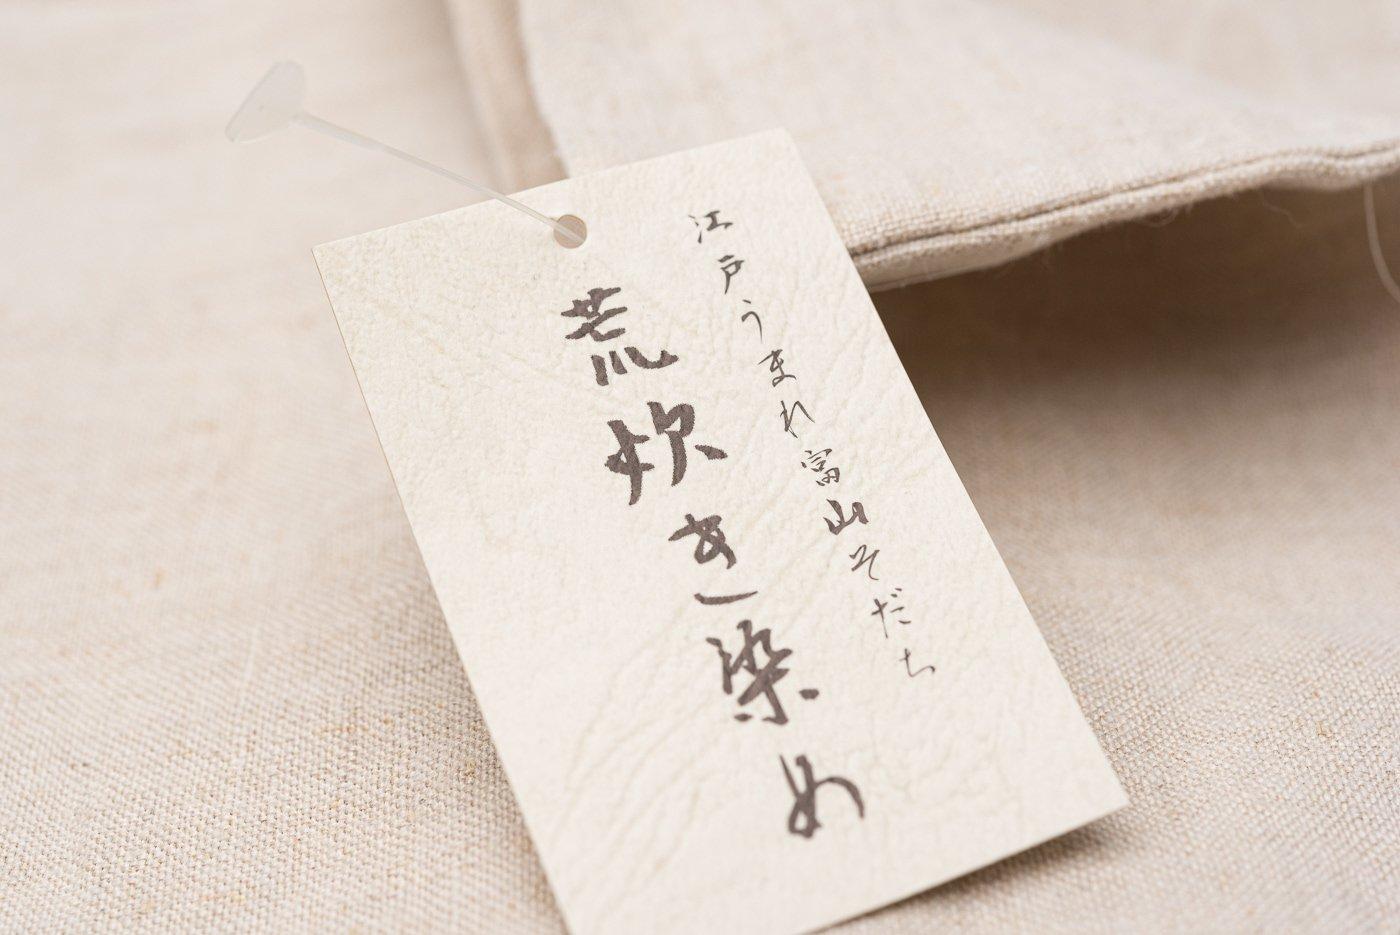 江戸うまれ富山そだち
荒炊き染め